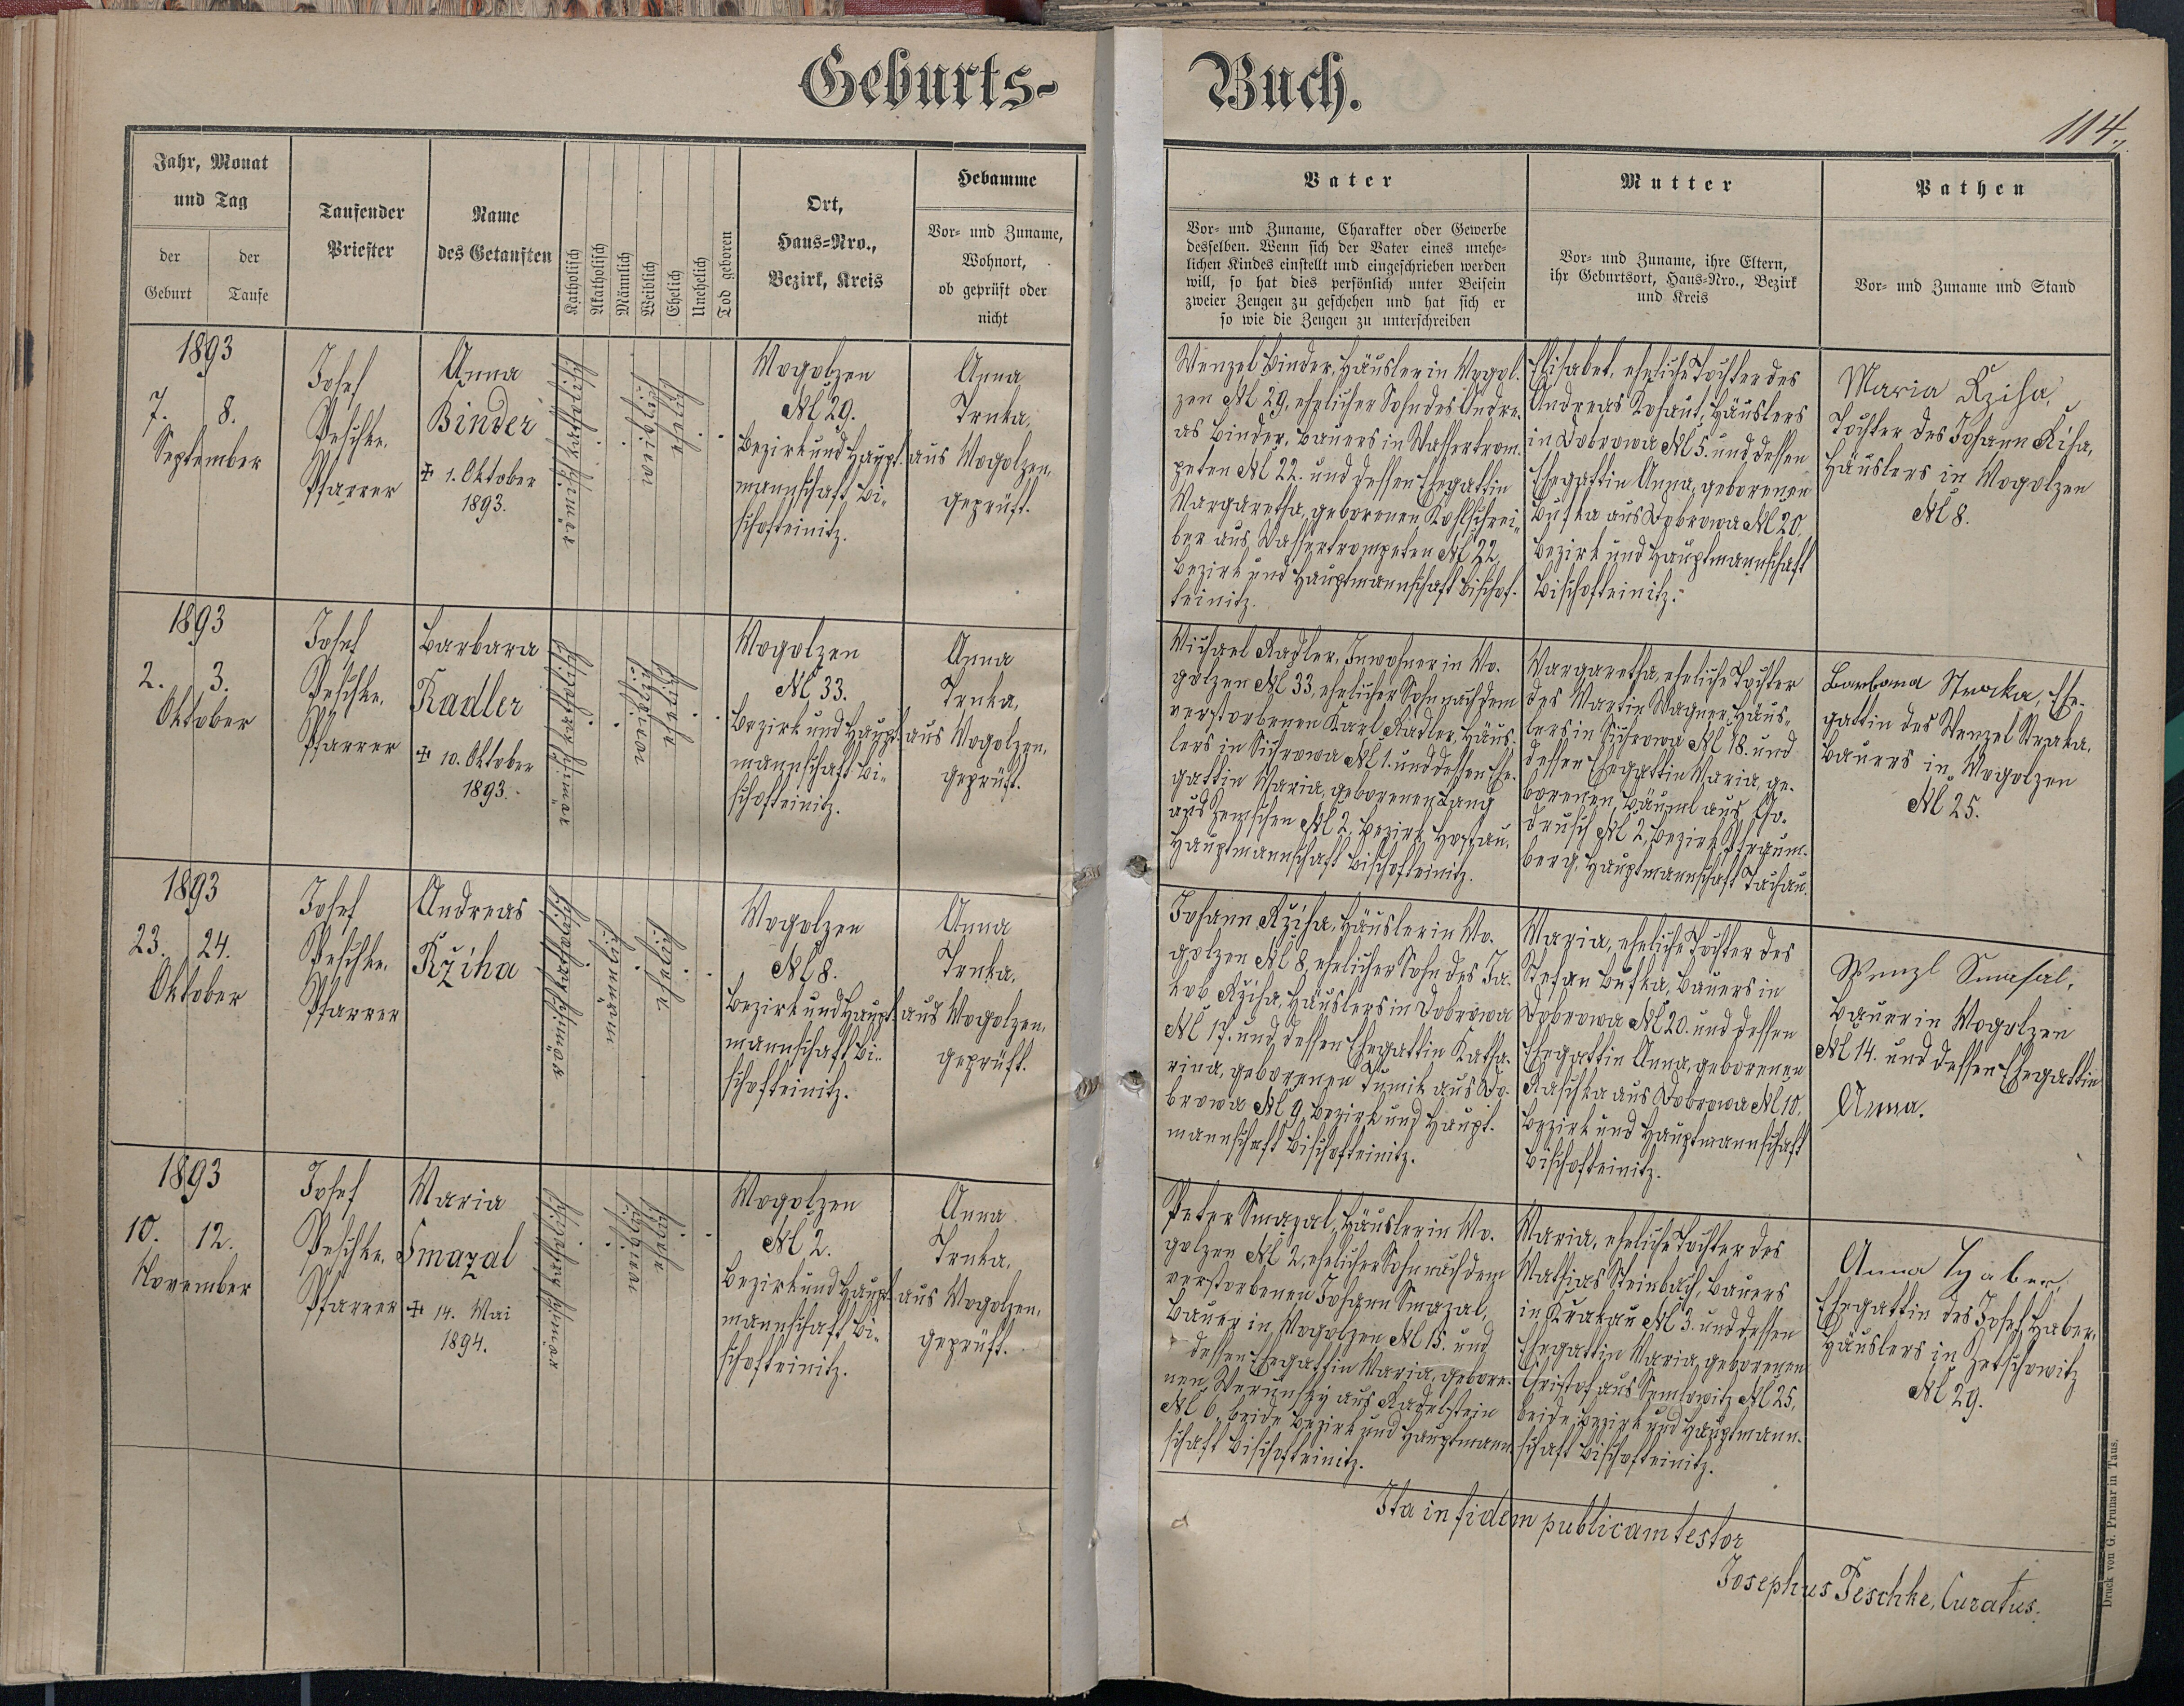 Geburts-
Buch.
114.
Jahr, Monat
und Tag
der
Geburt
der
Taufe
Taufender
Priester
Name
des Getauften
Katholisch
Akatholisch
Männlich
Weiblich
Ehelich
Unehelich
Tod geboren
Ort,
Haus-Nro.,
Bezirk, Kreis
Hebamme
Vor- und Zuname,
Wohnort,
ob geprüft oder
nicht
Vater
Vor- und Zuname, Charakter oder Gewerbe
desselben. Wenn sich der Vater eines unehe-
lichen Kindes einstellt und eingeschrieben werden
will, so hat dies persönlich unter Beisein
zweier Zeugen zu geschehen und hat sich er
so wie die Zeugen zu unterschreiben
Mutter
Vor- und Zuname, ihre Eltern,
ihr Geburtsort, Haus-Nro., Bezirk
und Kreis
Pathen
Vor- und Zuname und Stand
1893
7. 8.
September
Josef
Peschke,
Pfarrer
Anna
Binder
+ 1. Oktober
1893.
weiblich
ehelich
Mogolzen
N 29.
Bezirk und Haupt-
mannschaft Bi-
schofteinitz.
Anna
Trnka,
aus Mogolzen,
geprüft.
Wenzel Binder, Häusler in Mogol-
zen N 29, ehelicher Sohn des Andre-
as Binder, Bauers in Wassertrom-
peten N 22. und dessen Ehegattin
Margaretha, geborenen Kohlschrei-
ber aus Wassertrompeten N 22,
Bezirk und Hauptmannschaft Bischof-
teinitz.
Elisabet, eheliche Tochter des
Andreas Kohaut, Häuslers
in Dobrowa N 5. und dessen
Ehegattin Anna, geborenen
Bufka aus Dobrowa N 20,
Bezirk und Hauptmannschaft
Bischofteinitz.
Maria Kziha,
Tochter des Johann Kziha,
Häuslers in Mogolzen
N 8.
1893
2. 3.
Oktober
Josef
Peschke,
Pfarrer
Barbara
Radler
+ 10. Oktober
1893.
weiblich
ehelich
Mogolzen
N 33.
Bezirk und Haupt-
mannschaft Bi-
schofteinitz.
Anna
Trnka,
aus Mogolzen,
geprüft.
Michael Radler, Inwohner in Mo-
golzen N 33, ehelicher Sohn nach dem
verstorbenen Karl Radler, Häus-
lers in Sichrowa N 1. und dessen Ehe-
gattin Maria, geborenen Lang
aus Zemschen N 2, Bezirk Hostau,
Hauptmannschaft Bischofteinitz.
Margaretha, eheliche Tochter
des Martin Wagner, Häus-
lers in Sichrowa N 18. und
dessen Ehegattin Maria, ge-
borenen Bäuml aus Go-
drusch N 2, Bezirk Pfraum-
berg, Hauptmannschaft Tachau.
Barbara Straka, Ehe-
gattin des Wenzel Straka,
Bauers in Mogolzen
N 25.
1893
23. 24.
Oktober
Josef
Peschke,
Pfarrer
Andreas
Kžiha
männlich
ehelich
Mogolzen
N 8.
Bezirk und Haupt-
mannschaft Bi-
schofteinitz.
Anna
Trnka,
aus Mogolzen,
geprüft.
Johann Kžiha, Häusler in Mo-
golzen N 8, ehelicher Sohn des Ja-
kob Kžiha, Häuslers in Dobrowa
N 17. und dessen Ehegattin Katha-
rina, geborenen Tumik aus Do-
browa N 9, Bezirk und Haupt-
mannschaft Bischofteinitz.
Maria, eheliche Tochter des
Stefan Bufka, Bauers in
Dobrowa N 20. und dessen
Ehegattin Anna, geborenen
Raschka aus Dobrowa N 10,
Bezirk und Hauptmannschaft
Bischofteinitz.
Wenzl Smasal,
Bauer in Mogolzen
N 14. und dessen Ehegattin
Anna.
1893
10. 12.
November
Josef
Peschke,
Pfarrer
Maria
Smazal
+ 14. Mai
1894.
weiblich
ehelich
Mogolzen
N 2.
Bezirk und Haupt-
mannschaft Bi-
schofteinitz.
Anna
Trnka,
aus Mogolzen,
geprüft.
Peter Smazal, Häusler in Mo-
golzen N 2, ehelicher Sohn nach dem
verstorbenen Johann Smazal,
Bauer in Mogolzen N 15. und
dessen Ehegattin Maria, gebore-
nen aus Radelstein
N 6, beide Bezirk und Hauptmann-
schaft Bischofteinitz.
Maria, eheliche Tochter des
Mathias Steinbach, Bauers
in Krakau N 3. und dessen
Ehegattin Maria, geborenen
Christof aus Semlowitz N 25,
beide Bezirk und Hauptmann-
schaft Bischofteinitz.
Anna Haber,
Ehegattin des Josef Haber,
Häuslers in Zetschowitz
N 29.
Ita in fidem publicam testor
Josephus Peschke, Curatus.
Druck von G. Prunar in Taus.